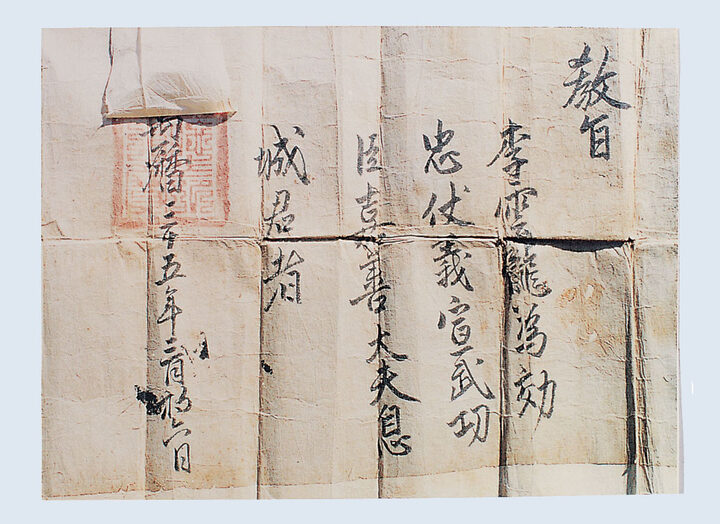 教旨
李雲龍為効
忠仗義宣武功
臣嘉善大夫息
城君者
曆三十五年月拾六日